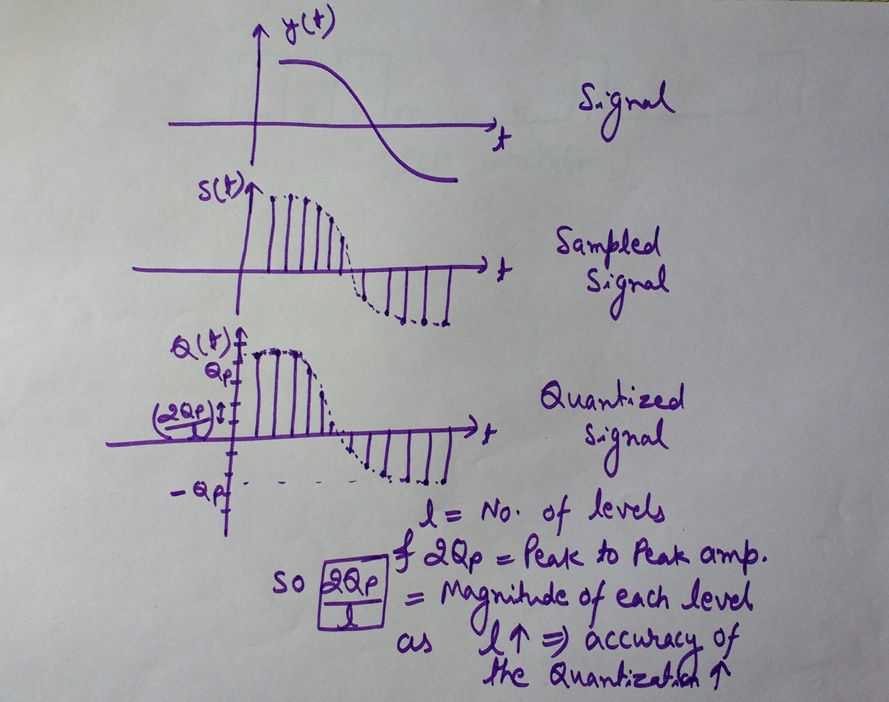 y(t)
Signal
t
S(t)
Sampled
Signal
t
Q(t)
Qp
(2Qp/l)
Quantized
Signal
t
-Qp
l = No. of levels
& 2Qp = Peak to Peak amp.
So 2Qp/l = Magnitude of each level
as l↑ ⇒ accuracy of
the Quantization ↑